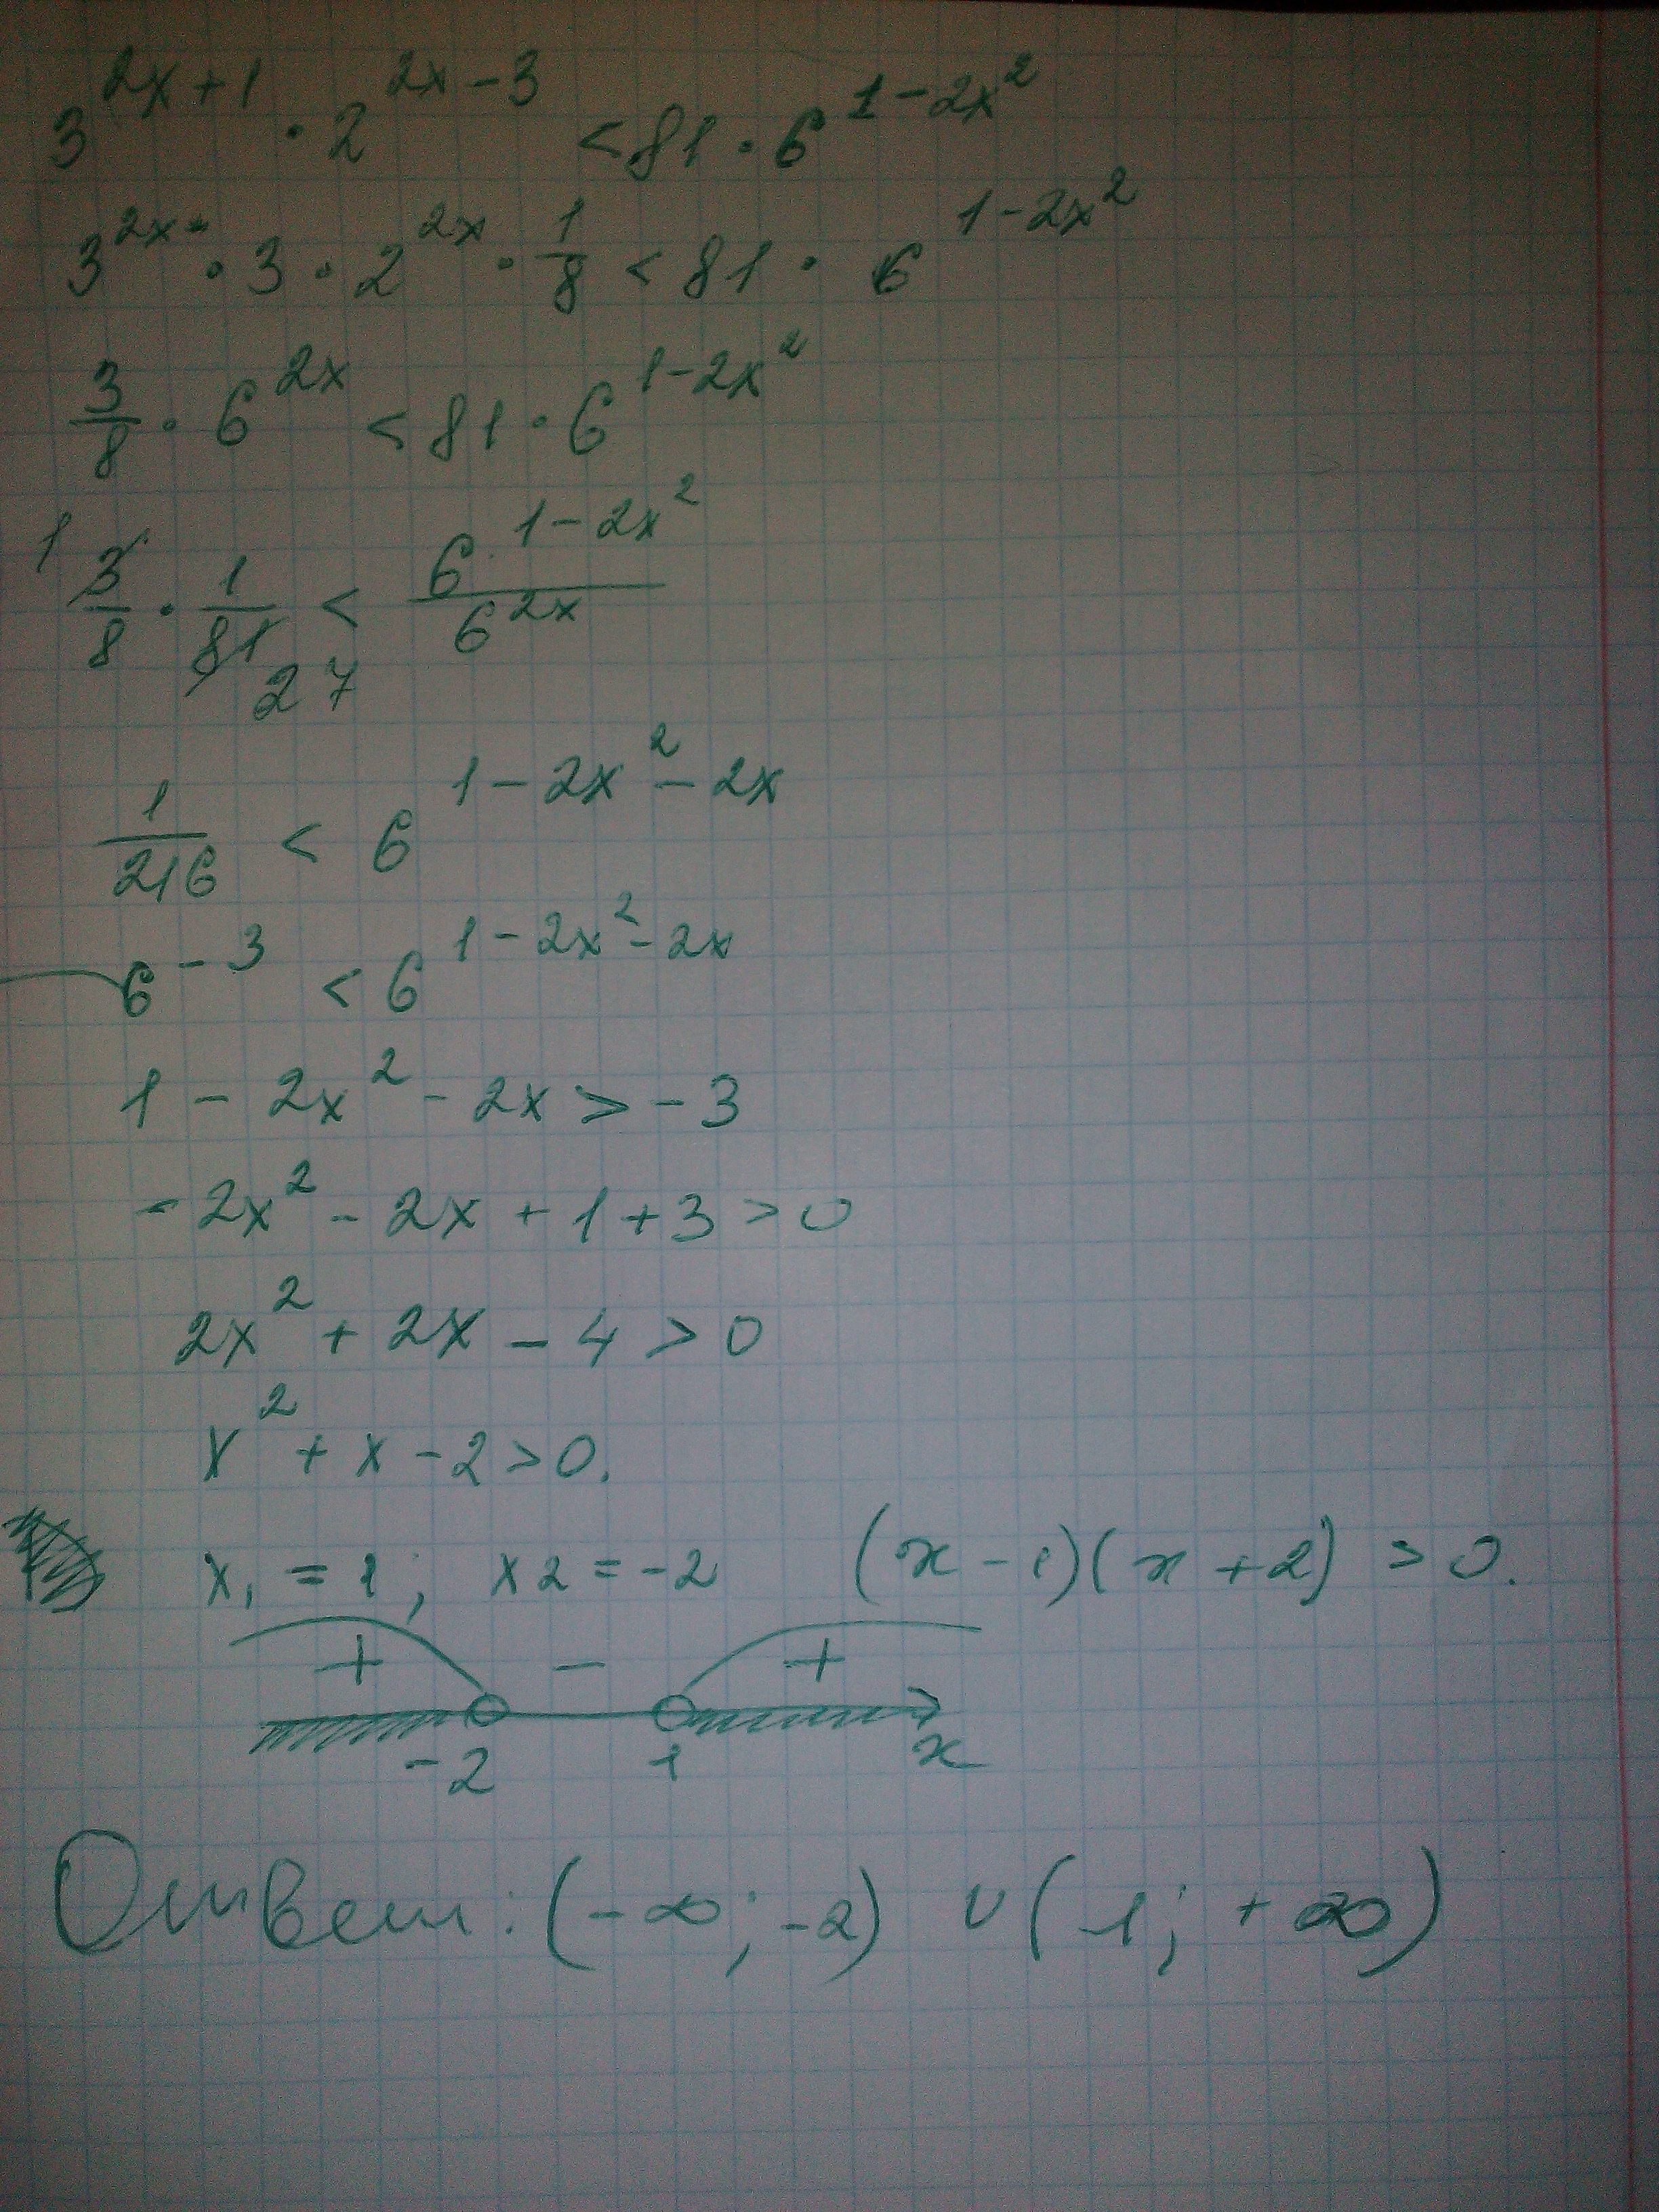 3^{2x+1} · 2^{2x-3} < 81 · 6^{1-2x^2}
3^{2x} · 3 · 2^{2x} · 1/8 < 81 · 6^{1-2x^2}
3/8 · 6^{2x} < 81 · 6^{1-2x^2}
1 3/8 · 1/81 27 < 6^{1-2x^2}/6^{2x}
1/216 < 6^{1-2x^2-2x}
6^{-3} < 6^{1-2x^2-2x}
1 - 2x^2 - 2x > -3
-2x^2 - 2x + 1 + 3 > 0
2x^2 + 2x - 4 > 0
x^2 + x - 2 > 0.
x_1 = 1; x2 = -2 (x-1)(x+2) > 0.
+ - +
-2 1 x
Ответ: (-∞; -2) ∪ (1; +∞)